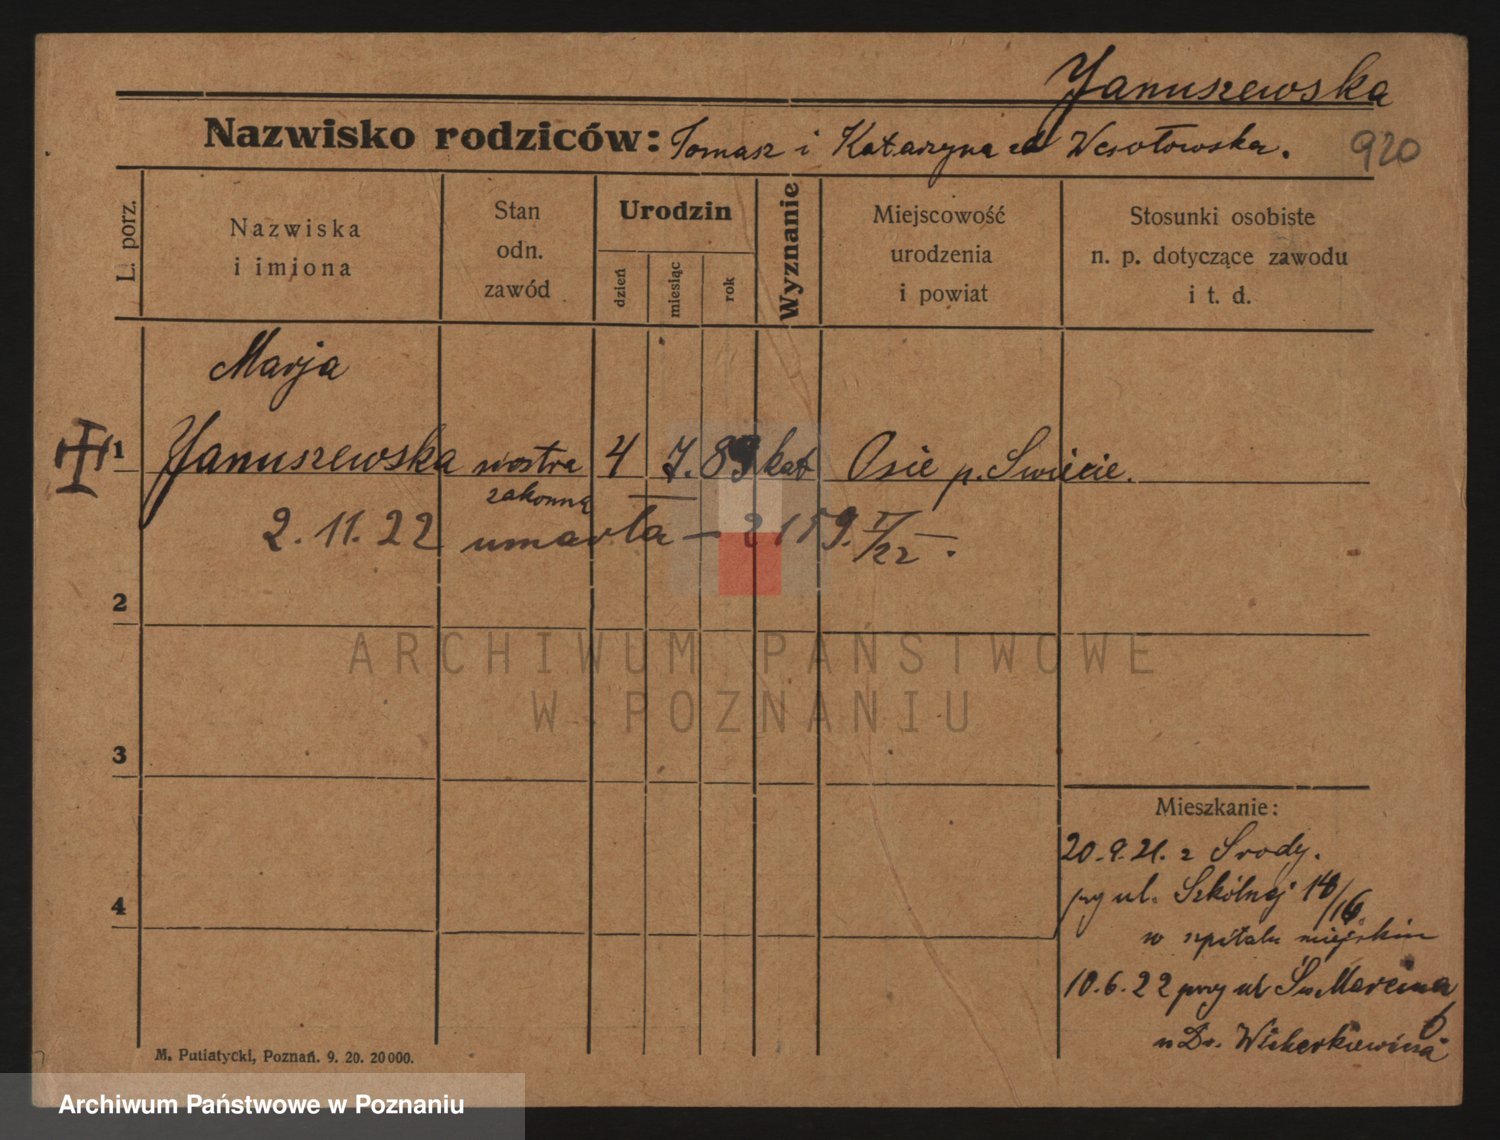 Januszewska
Nazwisko rodziców: Tomasz i Katarzyna zd Wesołowska.
920
L. porz.
Nazwiska
i imiona
Stan
odn.
zawód
Urodzin
dzień
miesiąc
rok
Wyznanie
Miejscowość
urodzenia
i powiat
Stosunki osobiste
n. p. dotyczące zawodu
i t. d.
Marja
1 Januszewska siostra 4 7. 89 kat Osie p. Swiecie.
zakonna
2. 11. 22 umarła – 2159. I/22.
2
ARCHIWUM PAŃSTWOWE
W POZNANIU
3
4
Mieszkanie:
20.9.21. z Srody.
przy ul. Szkólnej 14/16
w szpitalu miejskim
10.6.22 przy ul Św. Marcina
6
u Dr. Wicherkiewicza
M. Putiatycki, Poznań. 9. 20. 20000.
Archiwum Państwowe w Poznaniu